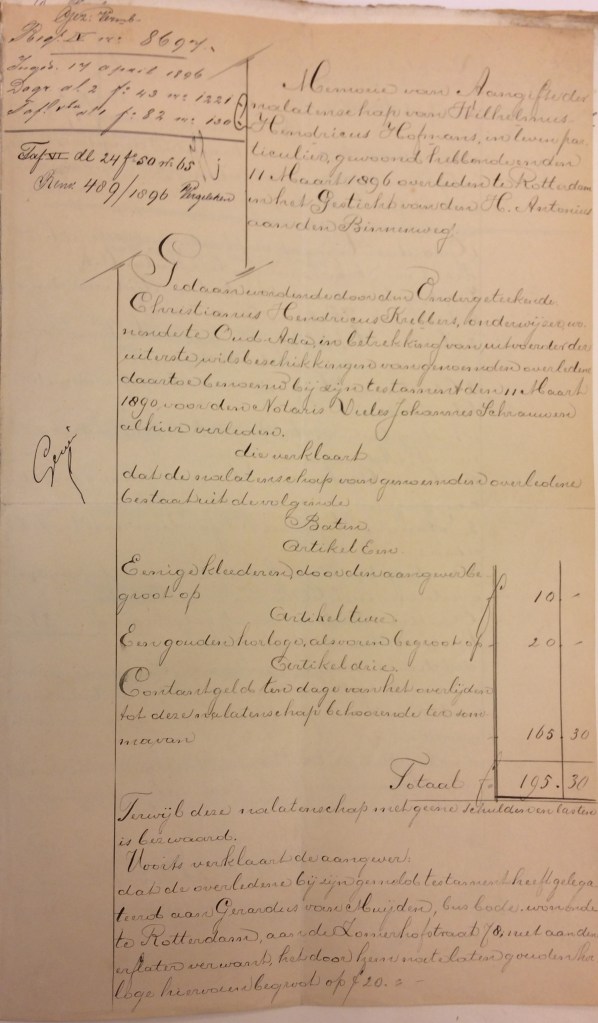 Reg. IV nr. 8697.
Inges. 17 April 1896
Dagr. dl 2 fo 43 nr. 1221
Taf. fo 82 nr. 130
Taf VI dl 24 fo 50 nr 65
Renv. 489/1896 Vergeleken
Memorie van Aangifte der
nalatenschap van Wilhelmus
Hendricus Hofmans, in leven par-
ticulier, gewoond hebbende en den
11 Maart 1896 overleden te Rotterdam
in het Gesticht van den H. Antonius
aan den Binnenweg.
Gedaan wordende door den Ondergeteekende
Christianus Hendricus Krebbers, onderwijzer, wo-
nende te Oud Ada, in betrekking van uitvoerder der
uiterste wilsbeschikkingen van genoemden overledene
daartoe benoemd bij zijn testament den 11 Maart
1890, voor den Notaris Johannes Schrauwen
alhier verleden.
die verklaart
dat de nalatenschap van genoemden overledene
bestaat uit de volgende
Baten
Artikel Een.
Eenige kleederen, door den aangever be-
groot op f 10.-
Artikel twee.
Een gouden horloge, als voren begroot op - 20.-
Artikel drie.
Contant geld ten dage van het overlijden
tot deze nalatenschap behoorende ter som-
ma van - 165.30
Totaal f 195.30
Terwijl deze nalatenschap met geene schulden en lasten
is bezwaard.
Voorts verklaart de aangever:
dat de overledene bij zijn gemeld testament heeft gelega-
teerd aan Gerardus van Muijden, busbode, wonende
te Rotterdam, aan de Zomerhofstraat 78, niet aan den
erflater verwant, het door hem natelaten gouden hor-
loge hiervoren begroot op f 20.-